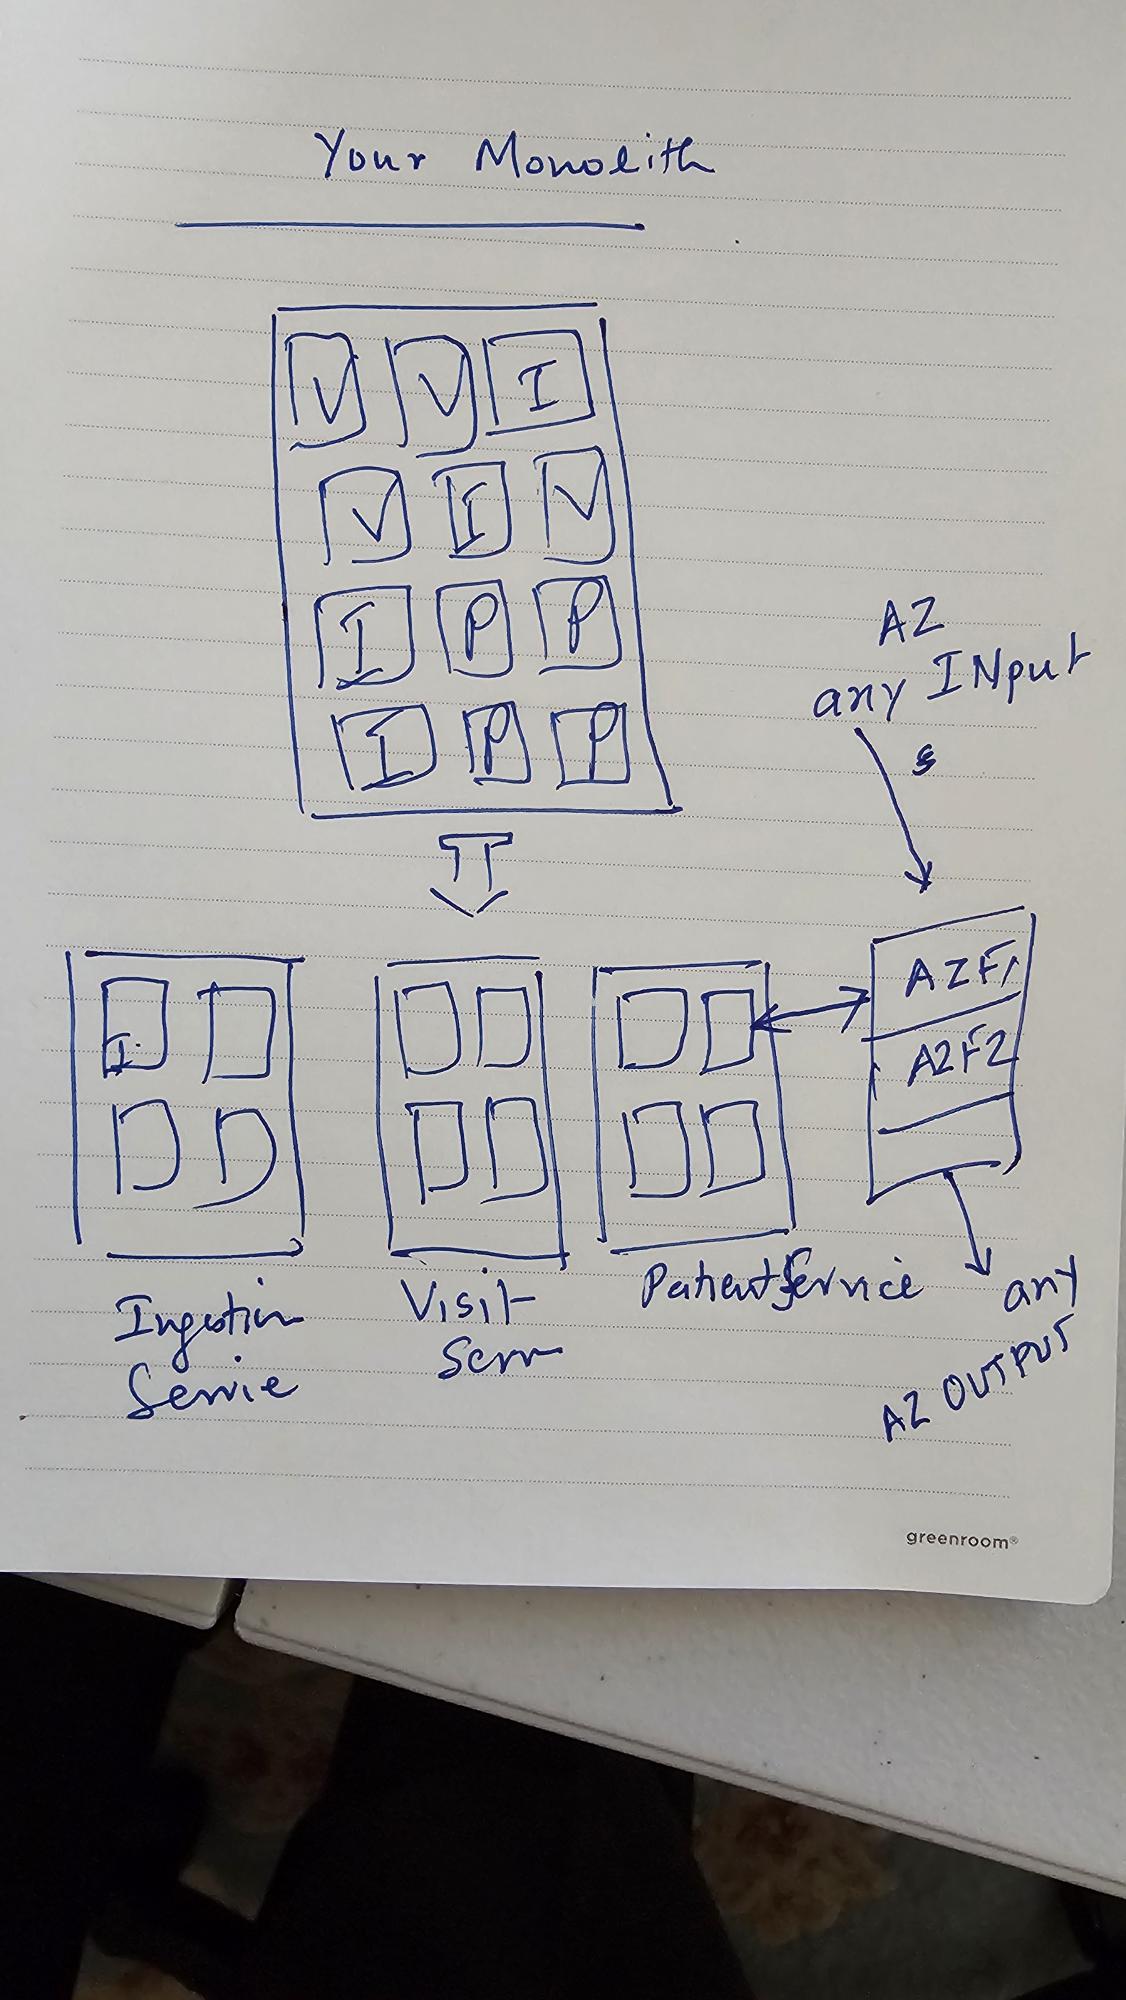 Your Monolith
V V I
V I V
I P P
I P P
AZ
any INput
s
I
AZF1
AZF2
Ingestion
Service
Visit
Serv
Patient Service
any
AZ OUTPUT
greenroom®